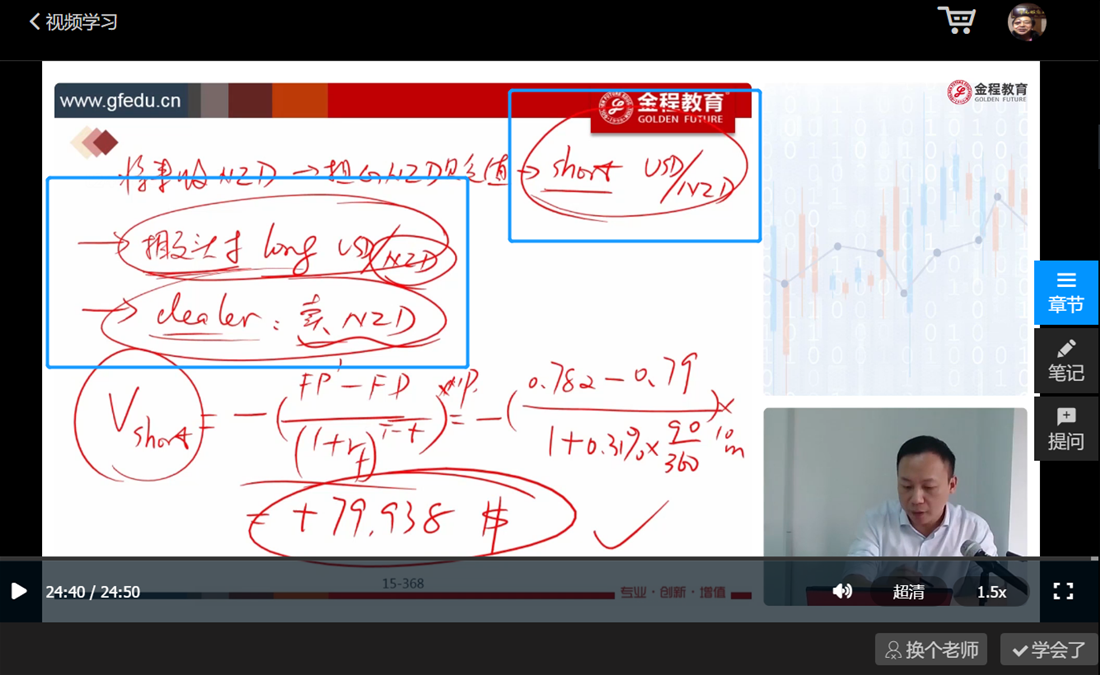 视频学习
www.gfedu.cn
金程教育
GOLDEN FUTURE
金程教育
GOLDEN FUTURE
将来收NZD → 担心NZD贬值 → short USD/NZD
→ 相反头寸 long USD/NZD
→ dealer: 卖NZD
Vshort = -(FP' - FP / (1+rf)^T-t) × NP = -(0.782 - 0.79 / 1+0.31% × 90/360) × 10m
= +79,938 $
章节
笔记
提问
24:40 / 24:50
15-368
专业·创新·增值
超清
1.5x
换个老师
学会了